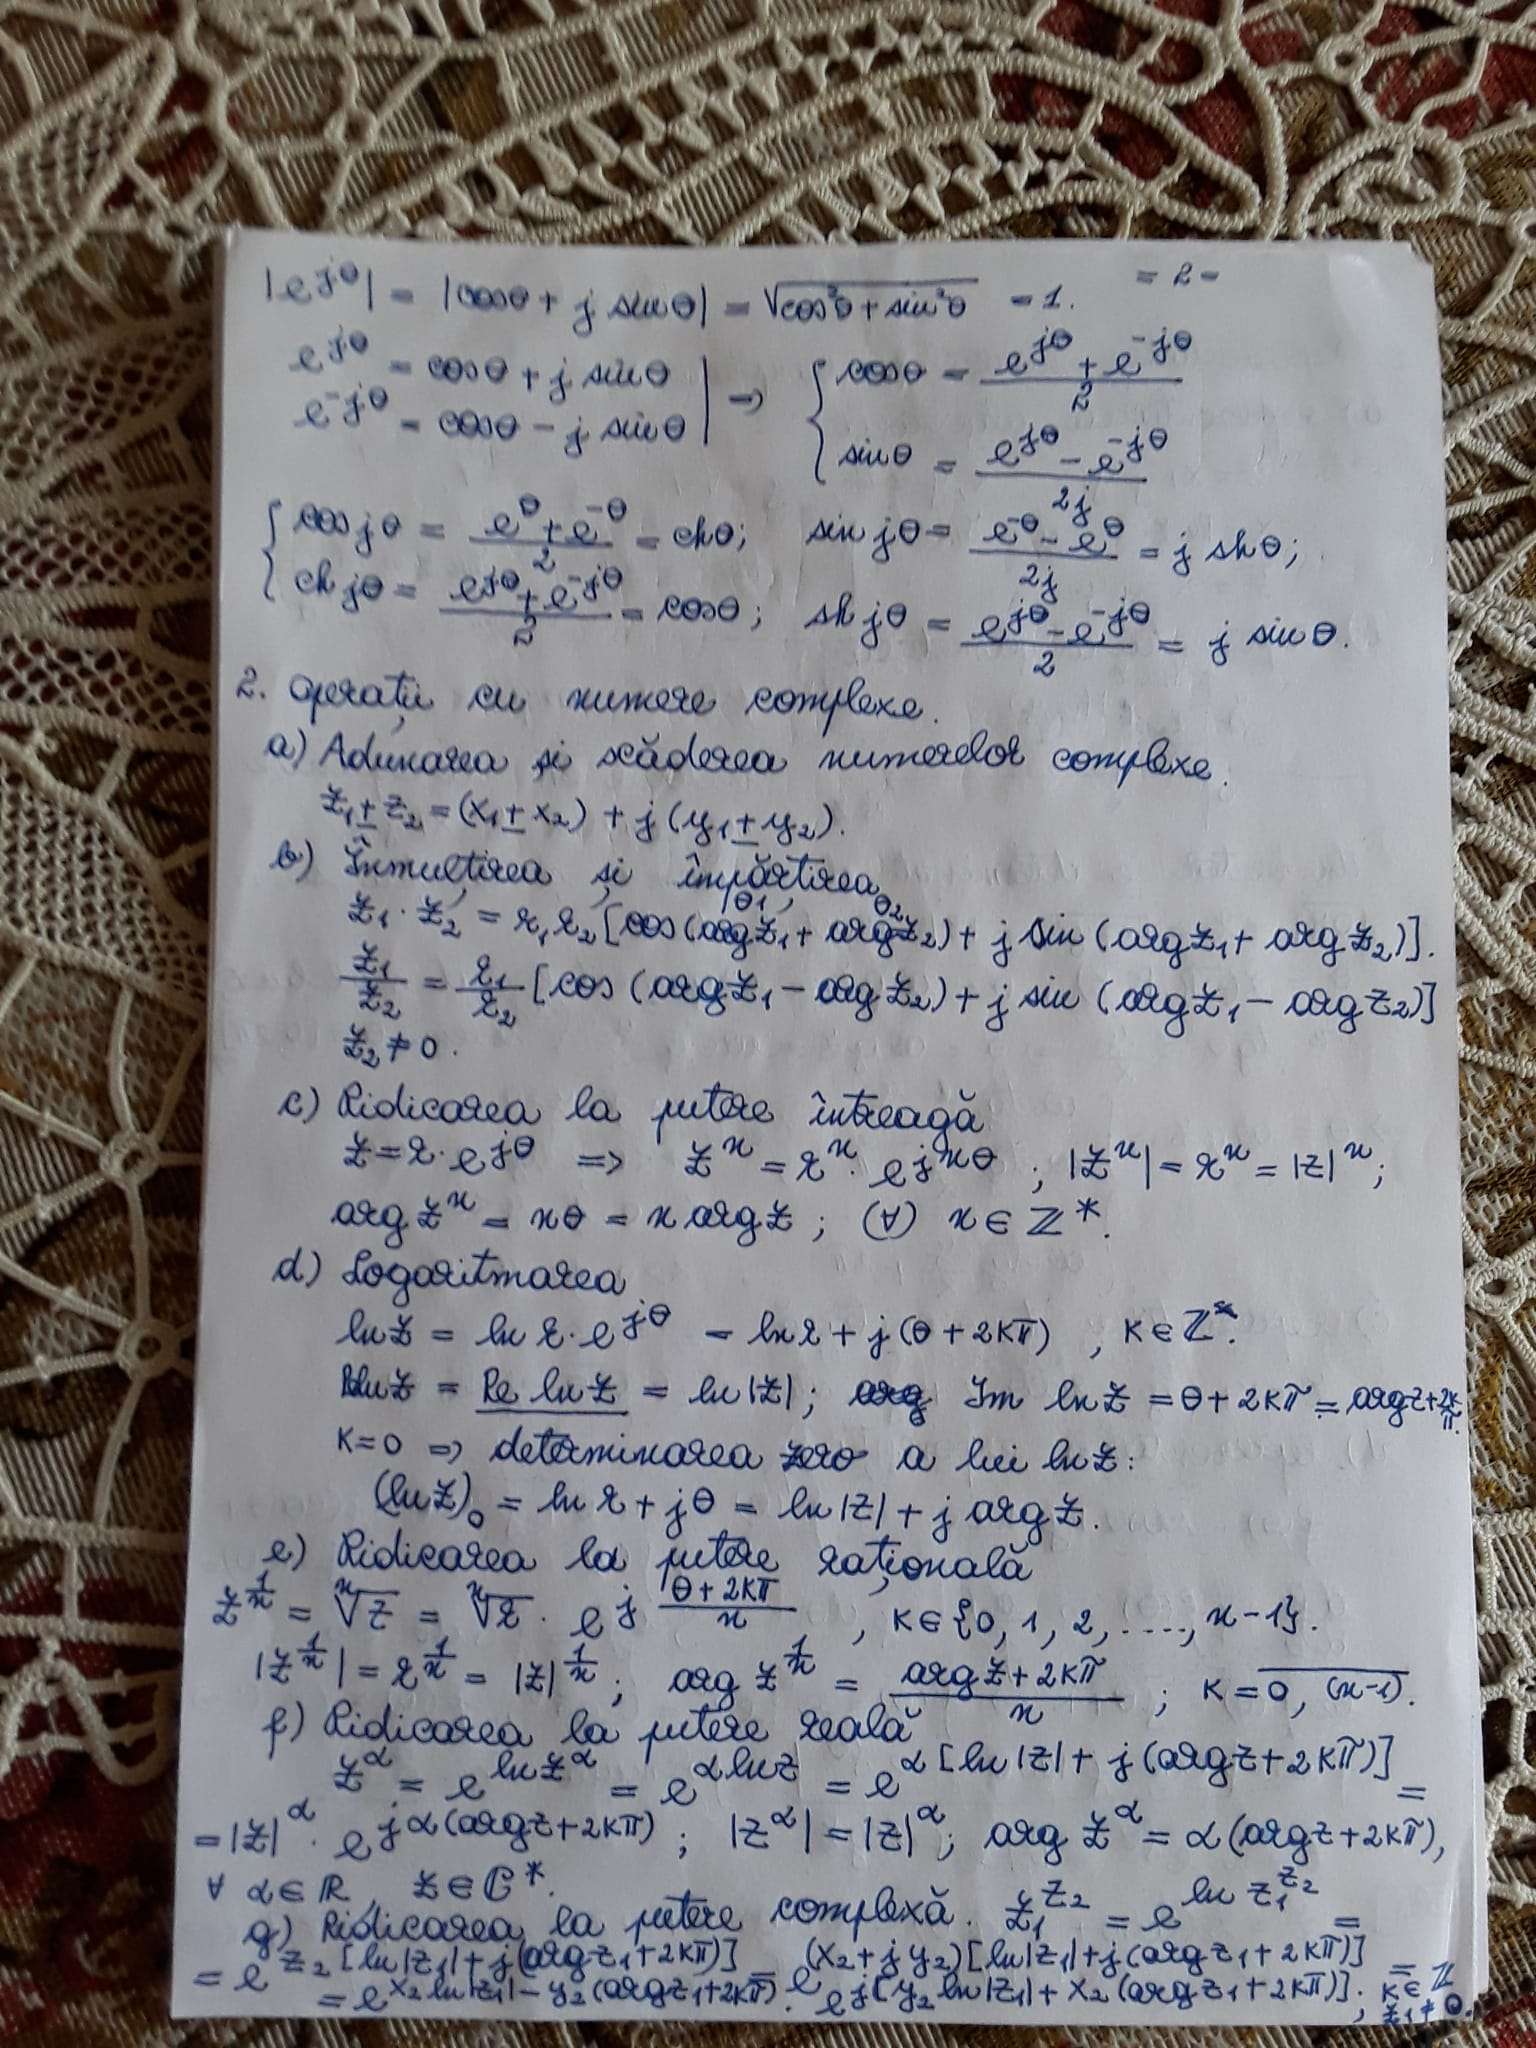 = 2 -
|e^{jθ}| = |cosθ + j sinθ| = √(cos²θ + sin²θ) = 1.
e^{jθ} = cosθ + j sinθ
e^{-jθ} = cosθ - j sinθ | ⇒ { cosθ = (e^{jθ} + e^{-jθ})/2
sinθ = (e^{jθ} - e^{-jθ})/2j
{ cos jθ = (e^{θ} + e^{-θ})/2 = chθ; sin jθ = (e^{-θ} - e^{θ})/2j = j shθ;
ch jθ = (e^{jθ} + e^{-jθ})/2 = cosθ; sh jθ = (e^{jθ} - e^{-jθ})/2 = j sinθ.
2. Operații cu numere complexe.
a) Adunarea și scăderea numerelor complexe.
z₁ ± z₂ = (x₁ ± x₂) + j (y₁ ± y₂).
b) Înmulțirea și împărțirea
θ₁ θ₂
z₁ · z₂ = r₁ r₂ [cos (arg z₁ + arg z₂) + j sin (arg z₁ + arg z₂)].
z₁/z₂ = r₁/r₂ [cos (arg z₁ - arg z₂) + j sin (arg z₁ - arg z₂)]
z₂ ≠ 0.
c) Ridicarea la putere întreagă
z = r · e^{jθ} ⇒ z^n = r^n · e^{jnθ} ; |z^n| = r^n = |z|^n ;
arg z^n = nθ = n arg z ; (∀) n ∈ ℤ*.
d) Logaritmarea
ln z = ln r · e^{jθ} = ln r + j (θ + 2kπ) , k ∈ ℤ*.
ln z = Re ln z = ln |z| ; Im ln z = θ + 2kπ = arg z + 2kπ.
k = 0 ⇒ determinarea zero a lui ln z :
(ln z)₀ = ln r + jθ = ln |z| + j arg z.
e) Ridicarea la putere rațională
z^{1/n} = ⁿ√z = ⁿ√r · e^{j (θ + 2kπ)/n} , k ∈ {0, 1, 2, ...., n-1}.
|z^{1/n}| = r^{1/n} = |z|^{1/n} ; arg z^{1/n} = (arg z + 2kπ)/n ; k = 0, (n-1).
f) Ridicarea la putere reală
z^α = e^{ln z^α} = e^{α ln z} = e^{α [ln |z| + j (arg z + 2kπ)]} =
= |z|^α · e^{jα (arg z + 2kπ)} ; |z^α| = |z|^α ; arg z^α = α (arg z + 2kπ),
∀ α ∈ ℝ, z ∈ ℂ*.
g) Ridicarea la putere complexă. z₁^{z₂} = e^{ln z₁^{z₂}} =
= e^{z₂ [ln |z₁| + j (arg z₁ + 2kπ)]} = e^{(x₂ + j y₂) [ln |z₁| + j (arg z₁ + 2kπ)]} =
= e^{x₂ ln |z₁| - y₂ (arg z₁ + 2kπ)} · e^{j [y₂ ln |z₁| + x₂ (arg z₁ + 2kπ)]} ; k ∈ ℤ
, z₁ ≠ 0.